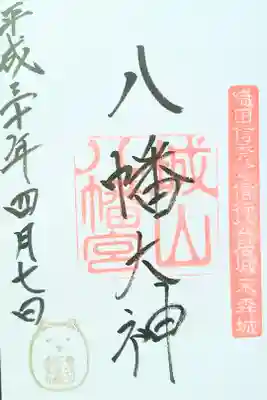 織田信秀公信行公居城 末森城
八幡大神
城山
八幡宮
平成三十年四月七日